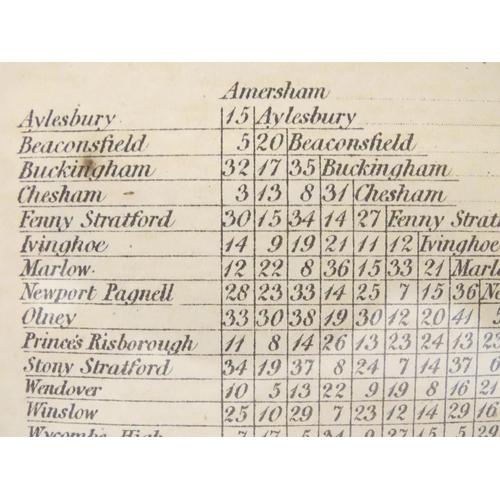 Amersham
Aylesbury 15 Aylesbury
Beaconsfield 5 20 Beaconsfield
Buckingham 32 17 35 Buckingham
Chesham 3 13 8 31 Chesham
Fenny Stratford 30 15 34 14 27 Fenny Strat
Ivinghoe 14 9 19 21 11 12 Ivinghoe
Marlow 12 22 8 36 15 33 21 Marl
Newport Pagnell 28 23 33 14 25 7 15 36 Ne
Olney 33 30 38 19 30 12 20 41 5
Prince's Risborough 11 8 14 26 13 23 24 13 23
Stony Stratford 34 19 37 8 24 7 14 37 6
Wendover 10 5 13 22 9 19 8 16 21
Winslow 25 10 29 7 23 12 14 29 16
Wycombe High 7 17 5 31 9 27 15 5 29